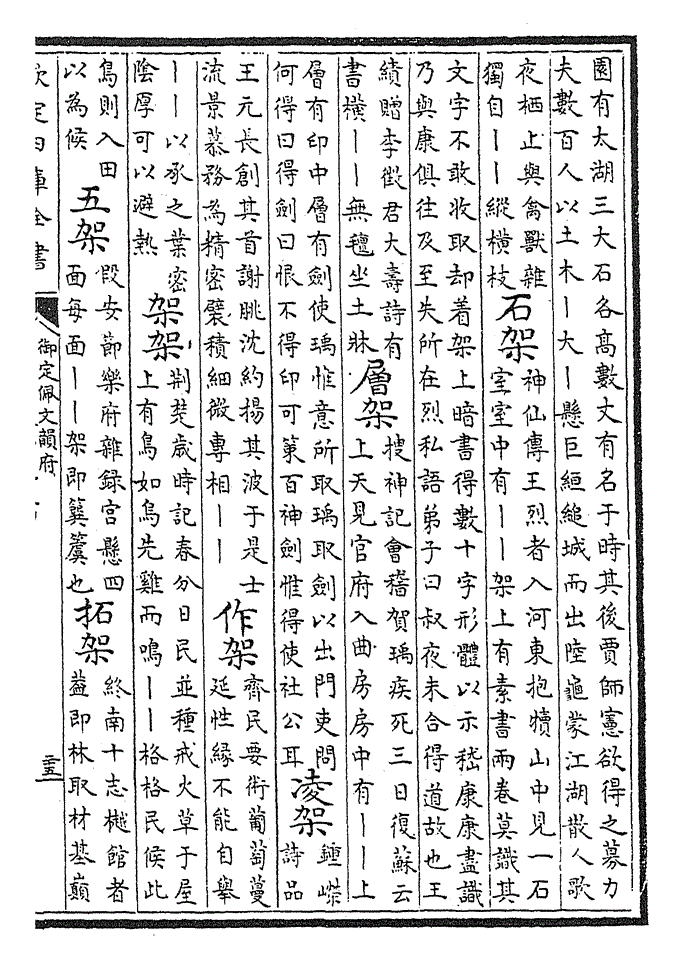 園有太湖三大石各高數丈有名于時其後賈師憲欲得之募力
夫數百人以土木丨大丨懸巨絙縋城而出陸龜蒙江湖散人歌
夜栖止與禽獸雜
獨自丨丨縱橫枝
石架
神仙傳王烈者入河東抱犢山中見一石
室室中有丨丨架上有素書兩卷莫識其
文字不敢收取却着架上暗書得數十字形體以示嵇康康盡識
乃與康俱往及至失所在烈私語弟子曰叔夜未合得道故也王
績贈李徵君大壽詩有
書橫丨丨無氊坐土牀
層架
搜神記會稽賀瑀疾死三日復蘇云
上天見官府入曲房房中有丨丨上
層有印中層有劍使瑀惟意所取瑀取劍以出門吏問
何得曰得劍曰恨不得印可策百神劍惟得使社公耳
凌架
鍾嶸
詩品
王元長創其首謝朓沈約揚其波于是士
流景慕務為精密襞積細微專相丨丨
作架
齊民要術葡萄蔓
延性緣不能自舉
丨丨以承之葉密
陰厚可以避熱
架架
荆楚歲時記春分日民並種戒火草于屋
上有鳥如烏先雞而鳴丨丨格格民候此
鳥則入田
以為候
五架
叚安節樂府雜録宮懸四
面每面丨丨架即簨簴也
拓架
終南十志樾館者
葢即林取材基巔
欽定四庫全書
御定佩文韻府